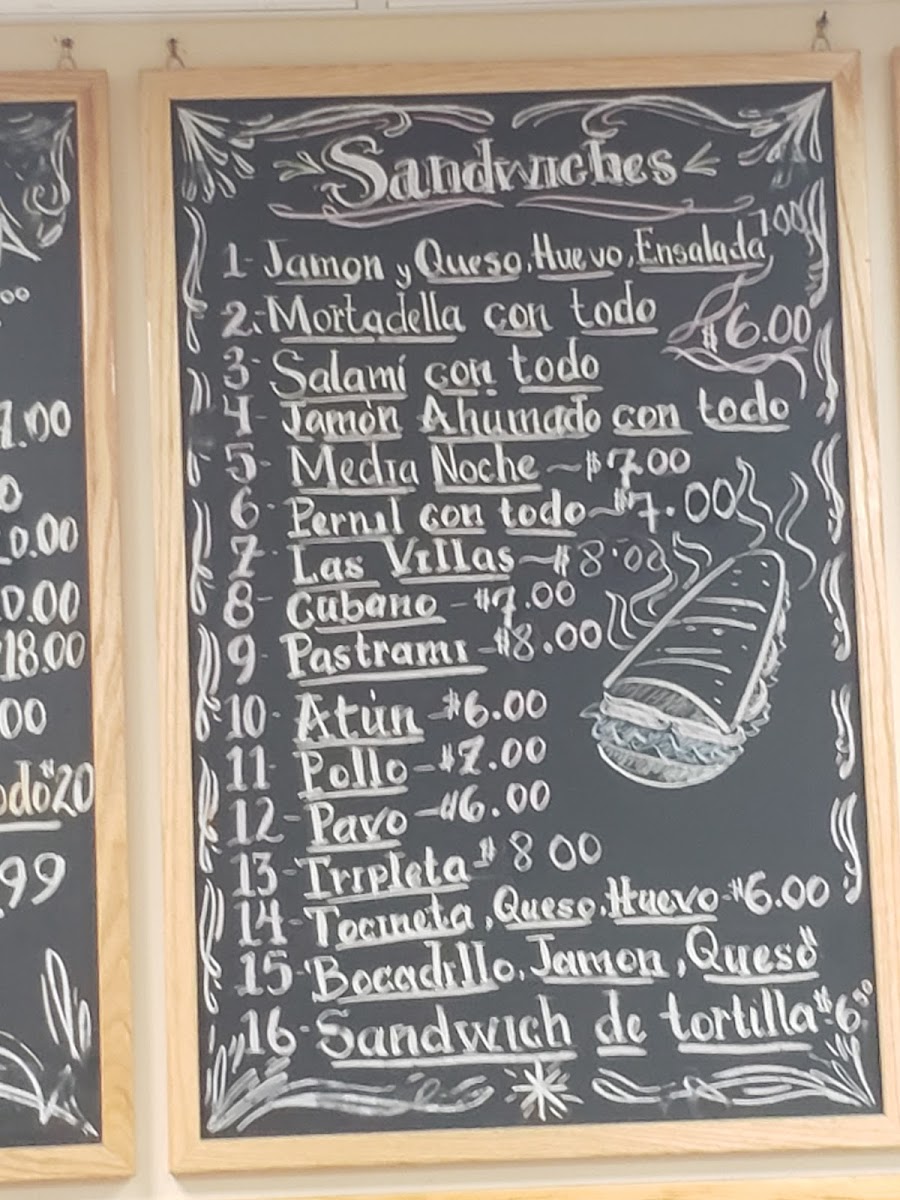 Sandwiches
1- Jamon y Queso, Huevo, Ensalada 7.00
2.- Mortadella con todo
$6.00
3- Salamí con todo
4- Jamón Ahumado con todo
5- Media Noche ~ $7.00
6- Pernil con todo ~ $7.00
7- Las Villas ~ $8.00
8- Cubano - $7.00
9- Pastrami - $8.00
10- Atún - $6.00
11- Pollo - $7.00
12- Pavo - $6.00
13- Tripleta $8 00
14- Tocineta, Queso, Huevo - $6.00
15- Bocadillo, Jamon, Queso
16- Sandwich de tortilla $6.50
0.00
0.00
18.00
00
odo $20
.99